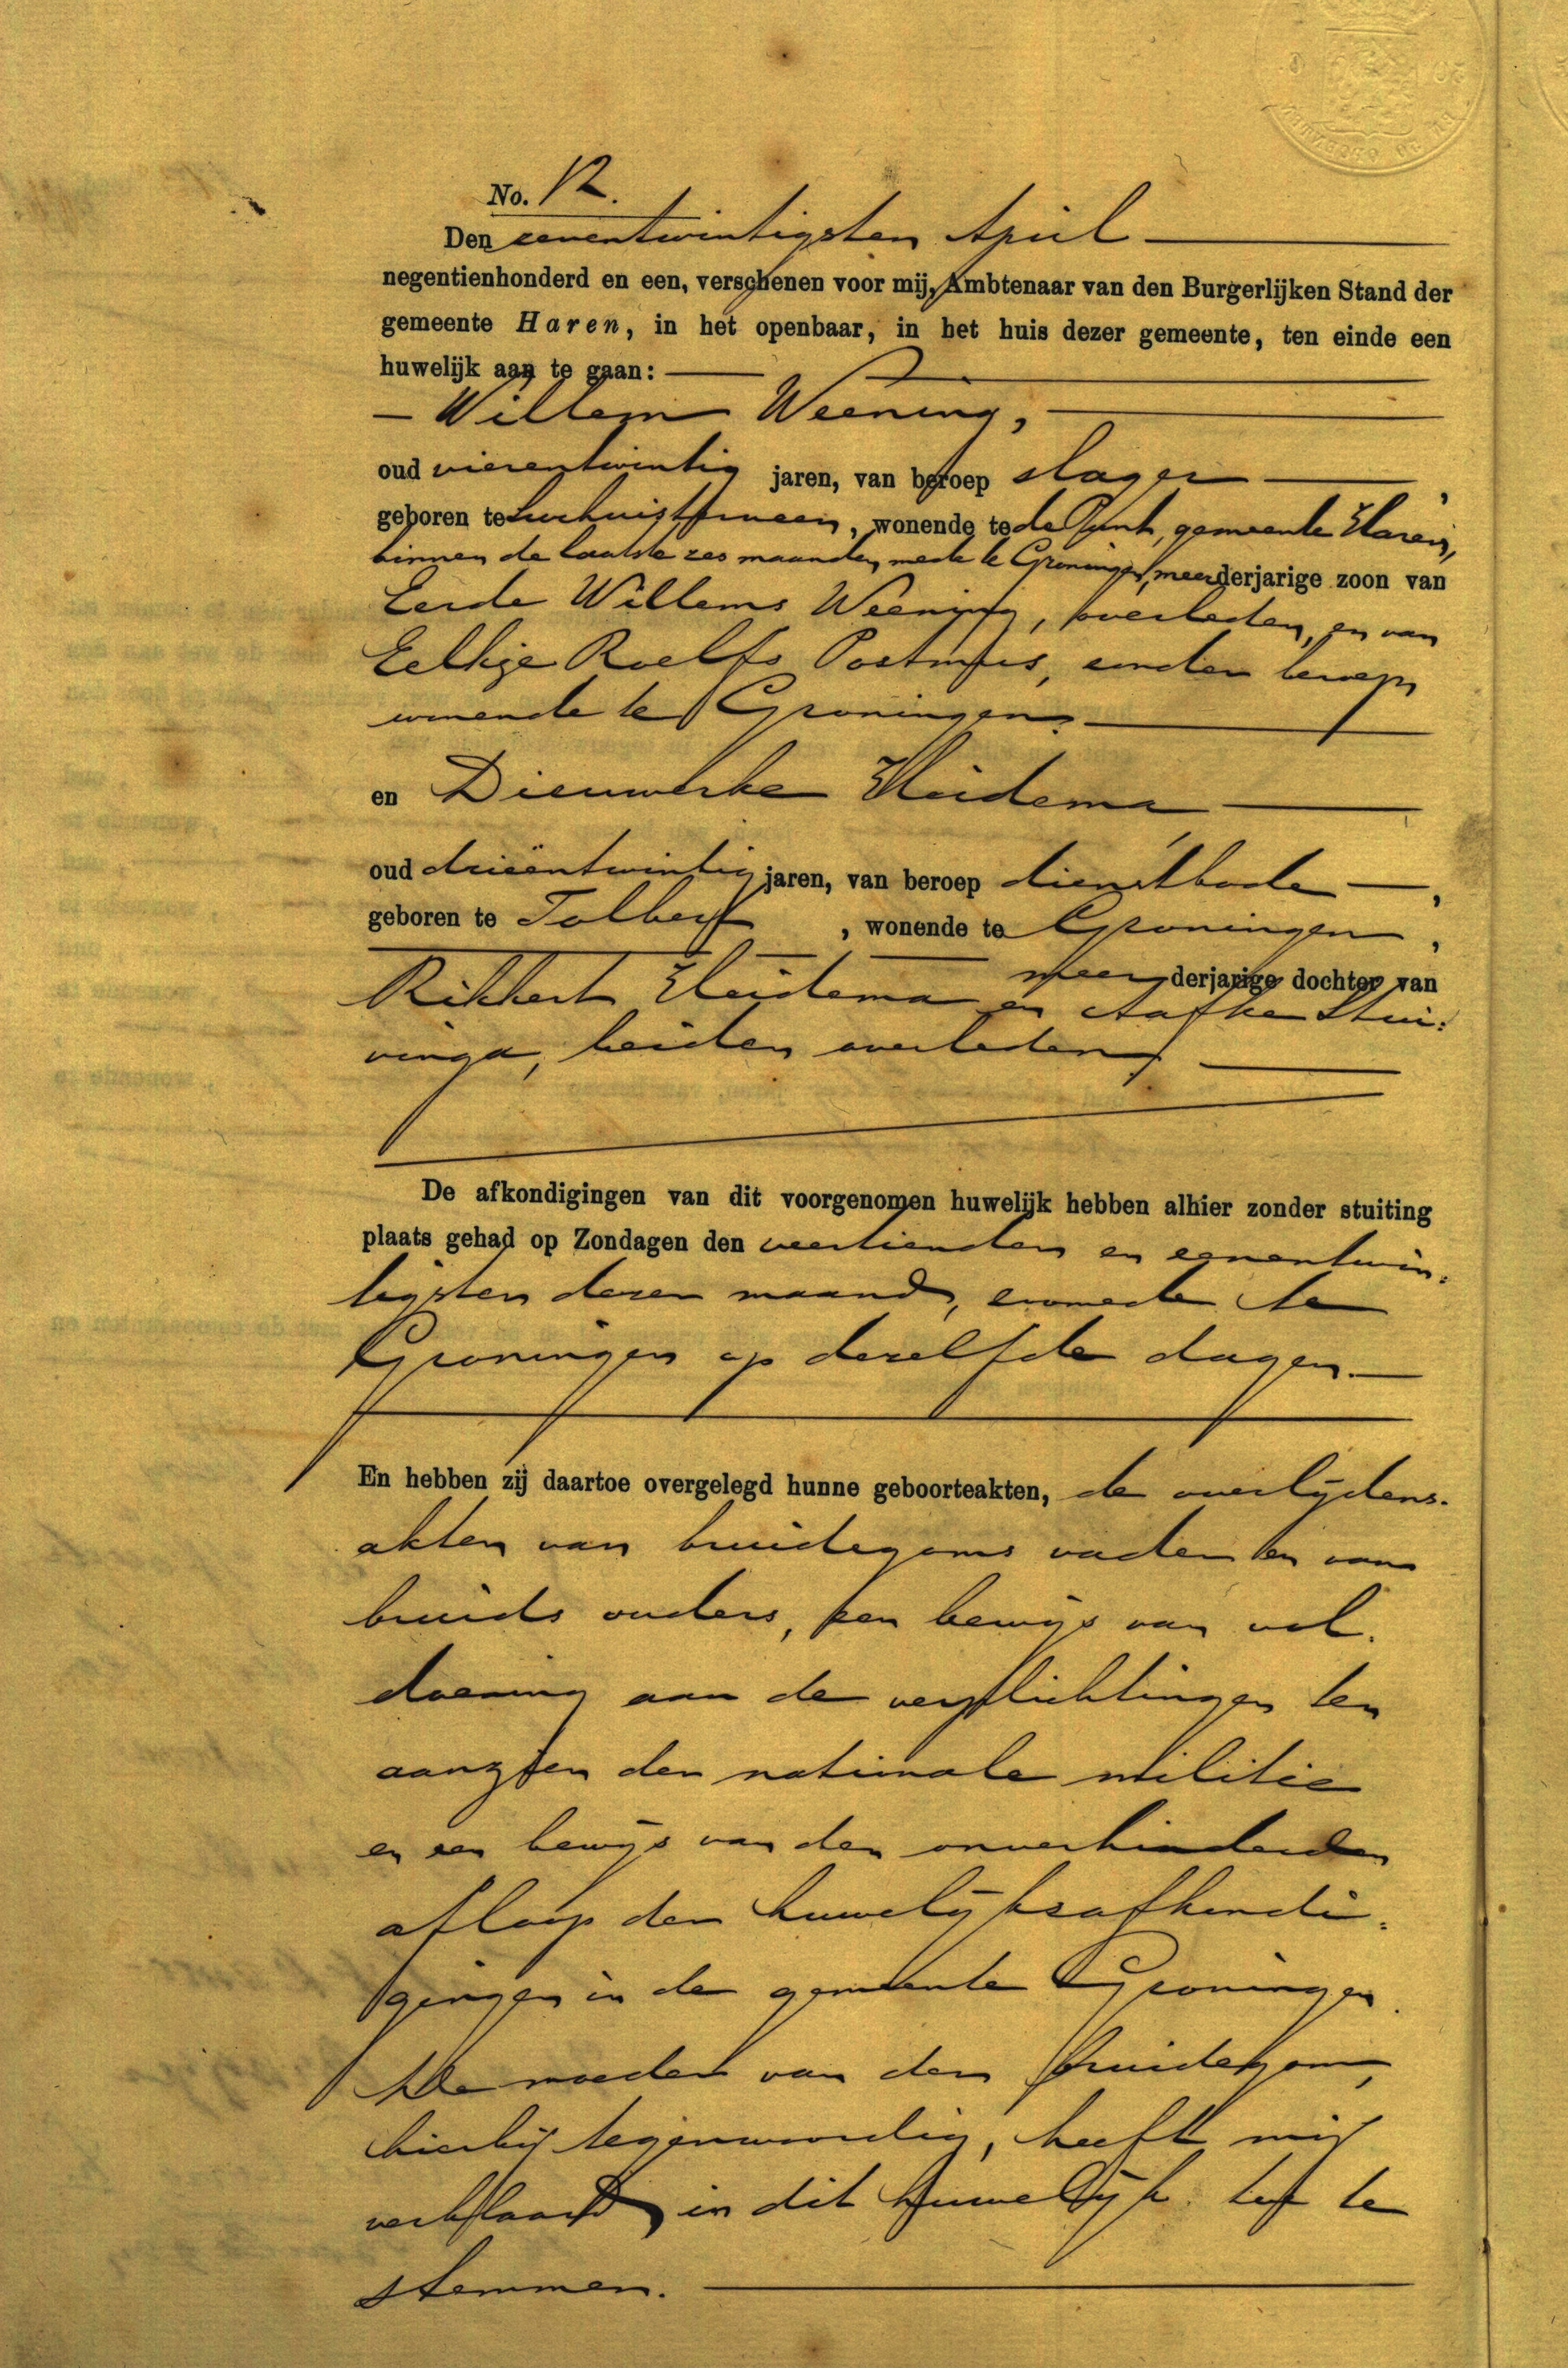 No. 12.
Den zevenentwintigsten April
negentienhonderd en een, verschenen voor mij, Ambtenaar van den Burgerlijken Stand der
gemeente Haren, in het openbaar, in het huis dezer gemeente, ten einde een
huwelijk aan te gaan:
Willem Weening,
oud vierentwintig jaren, van beroep slager,
geboren te Lucaswolde, wonende te de Punt, gemeente Haren,
binnen de laatste zes maanden mede te Groningen, meerderjarige zoon van
Eerde Willems Weening, overleden, en van
Eelkje Roelfs Postmus, zonder beroep
wonende te Groningen
en Dieuwerke Heidema
oud drieëntwintig jaren, van beroep dienstbode,
geboren te Tolbert, wonende te Groningen,
meerderjarige dochter van
Rikkert Heidema en Aafke Stui:
vinga, beiden overleden
De afkondigingen van dit voorgenomen huwelijk hebben alhier zonder stuiting
plaats gehad op Zondagen den veertienden en eenentwin:
tigsten dezer maand, evenmede te
Groningen op dezelfde dagen.
En hebben zij daartoe overgelegd hunne geboorteakten, de overlijdens-
akten van bruidegoms vader en van
bruids ouders, een bewijs van vol.
doening aan de verplichtingen ten
aanzien der nationale militie
en een bewijs van den onverhinderden
afloop der huwelijksafkondi:
gingen in de gemeente Groningen.
De moeder van den bruidegom,
hierbij tegenwoordig, heeft mij
verklaard in dit huwelijk toe te
stemmen.